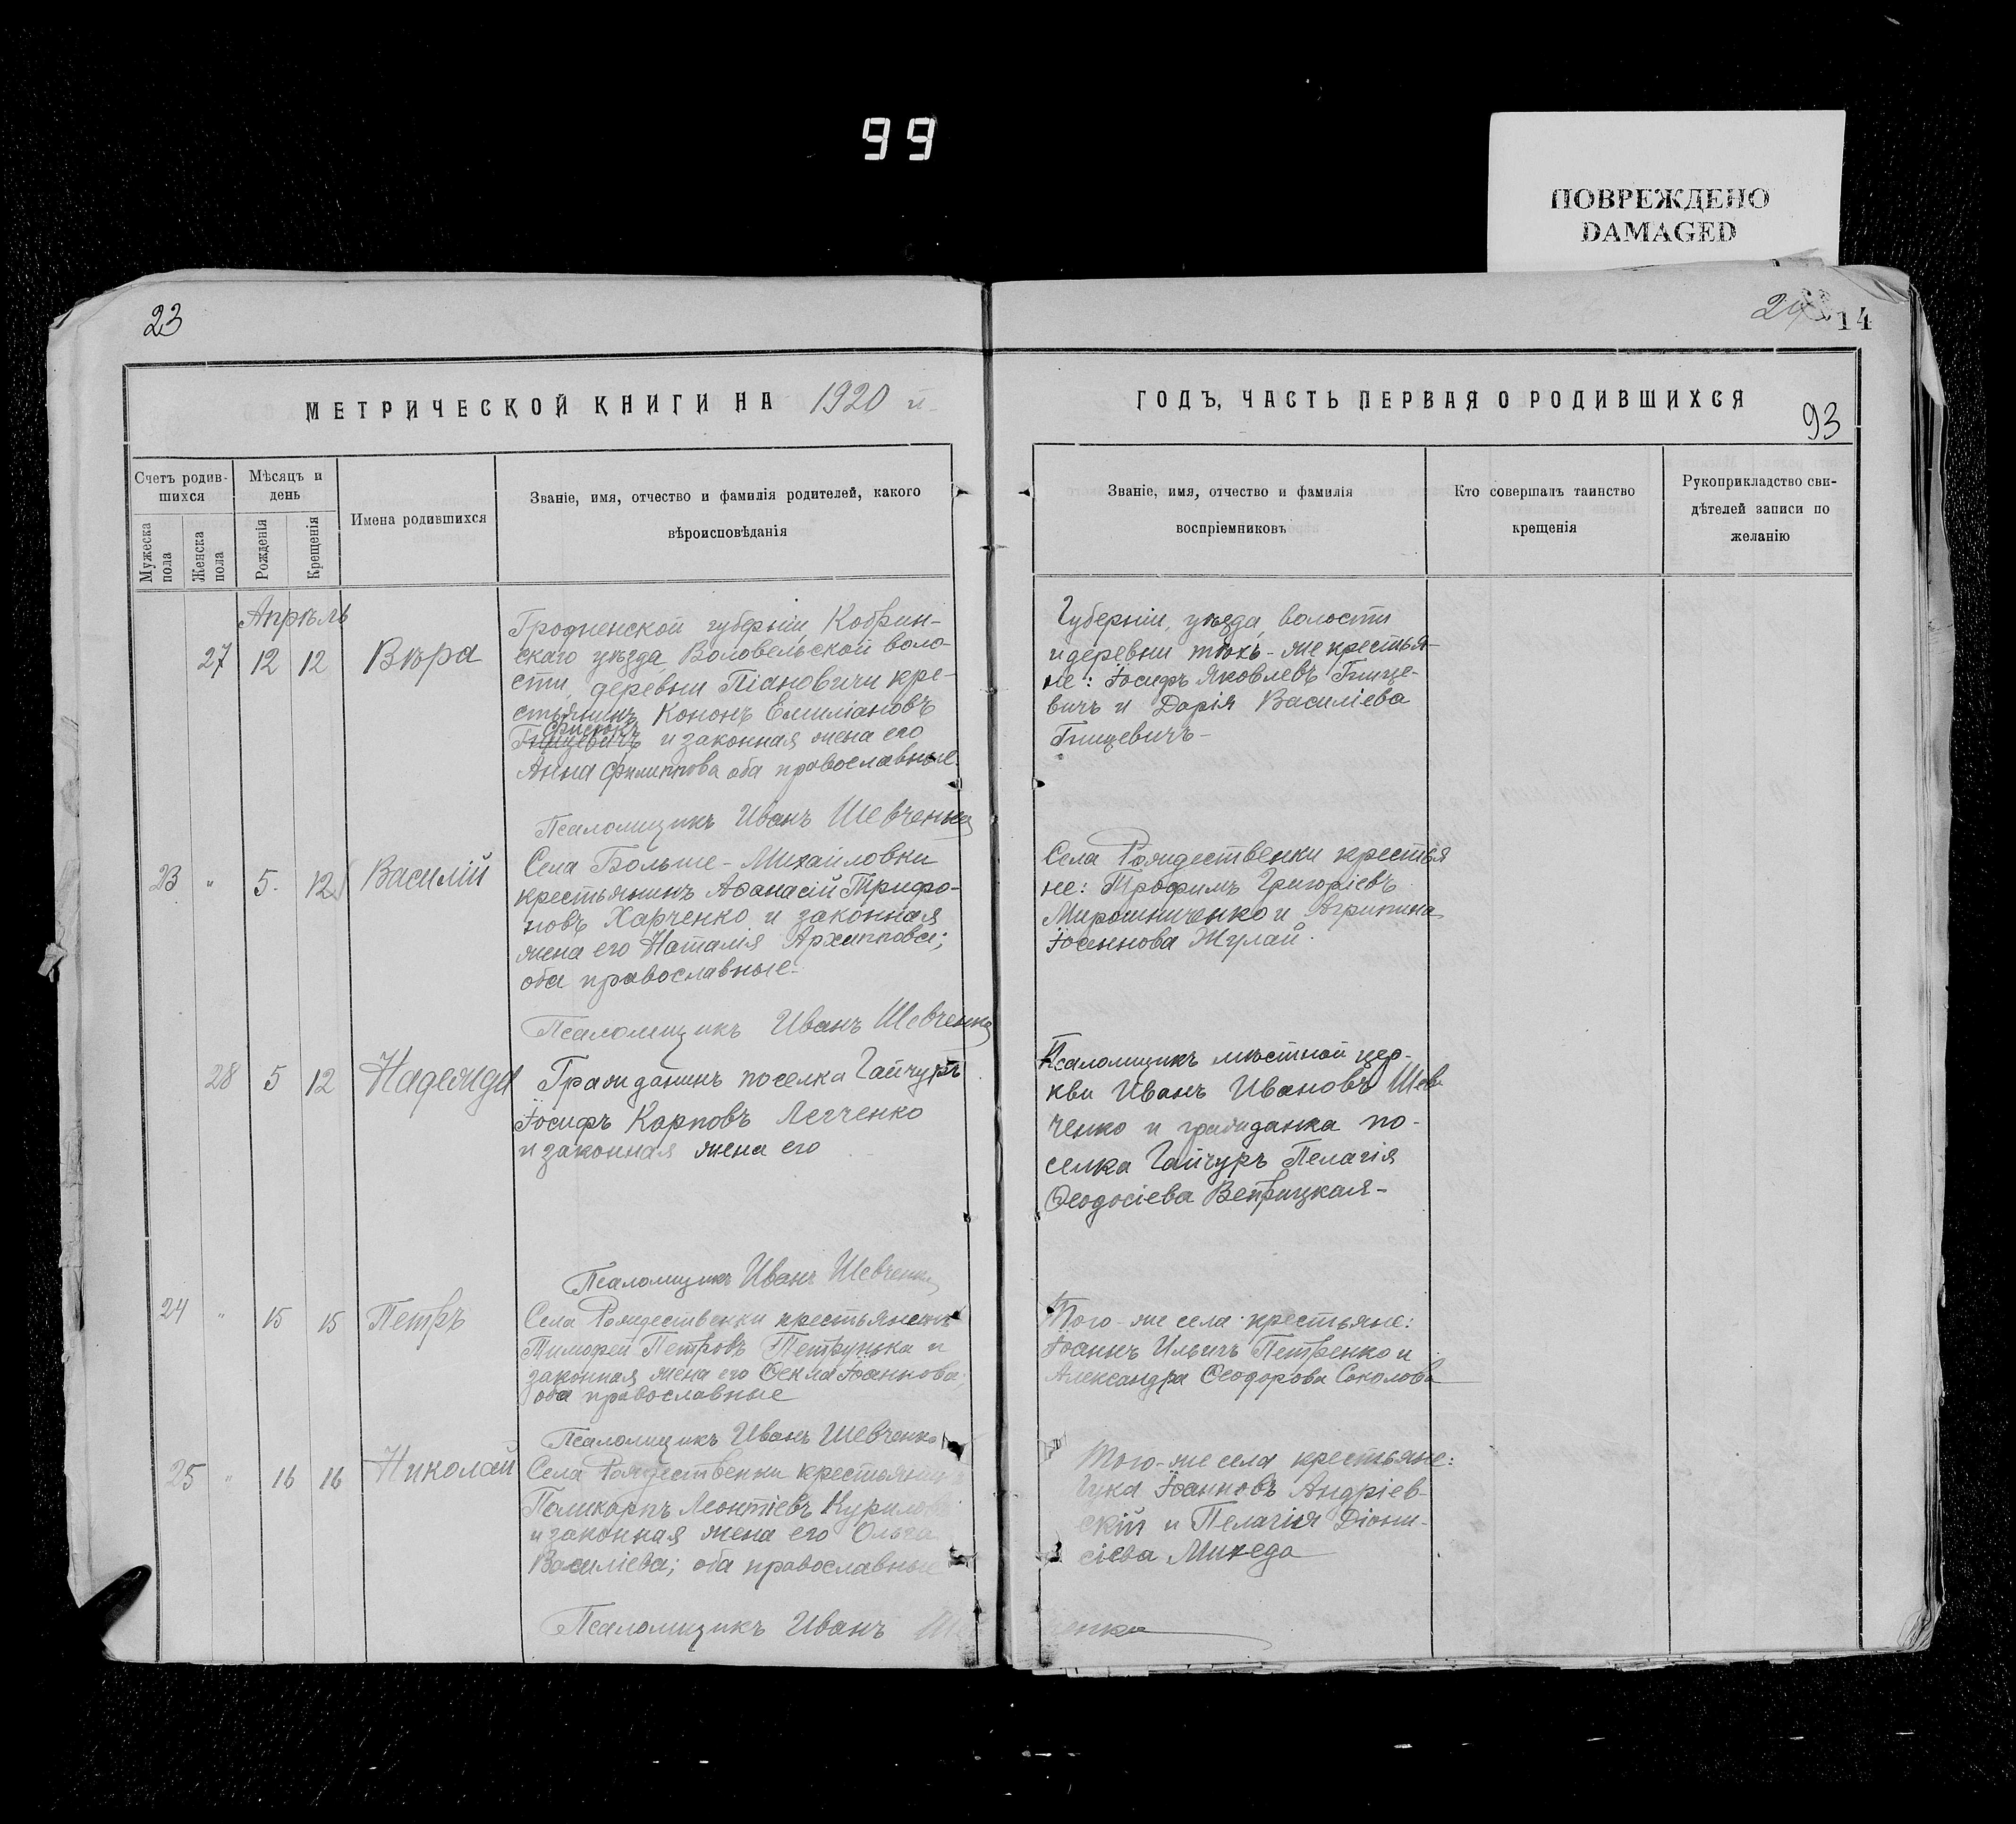 99
ПОВРЕЖДЕНО
DAMAGED
23
МЕТРИЧЕСКОЙ КНИГИ НА 1920 й
Счетъ родившихся
Мужеска пола
Женска пола
Мѣсяцъ и день
Рожденія
Крещенія
Имена родившихся
Званіе, имя, отчество и фамилія родителей, какого
вѣроисповѣданія
Апрѣль
27 12 12 Вѣра
Гродненской губерніи, Кобрин-
скаго уѣзда Воловельской воло-
сти, деревни Піановичи кре-
стьянинъ Кононъ Емиліановъ
и законная жена его
Анна Филиппова оба православные.
Псаломщикъ Иванъ Шевченко
23 " 5. 12 Василій
Села Больше-Михайловки
крестьянинъ Аѳанасій Трифо-
новъ Харченко и законная
жена его Наталія Архиппова;
оба православные.
Псаломщикъ Иванъ Шевченко
28 5 12 Надежда
Гражданинъ поселка Гайчуръ
Іосифъ Карповъ Легченко
и законная жена его
Псаломщикъ Иванъ Шевченко
24 " 15 15 Петръ
Села Рождественки крестьянинъ
Тимофей Петровъ Петрунька и
законная жена его Ѳекла Іоаннова;
оба православные
Псаломщикъ Иванъ Шевченко
25 " 16 16 Николай
Села Рождественки крестьянинъ
Поликарпъ Леонтіевъ Курилов
и законная жена его Ольга
Василіева; оба православные
Псаломщикъ Иванъ Шевченко
24
14
ГОДЪ, ЧАСТЬ ПЕРВАЯ О РОДИВШИХСЯ
93
Званіе, имя, отчество и фамилія
воспріемниковъ
Кто совершалъ таинство
крещенія
Рукоприкладство сви-
дѣтелей записи по
желанію
Губерніи, уѣзда, волости
и деревни тѣхъ-же крестья-
не: Іосифъ Яковлевъ Гнице-
вичъ и Дарія Василіева
Гницевичъ-
Села Рождественки крестья
не: Трофимъ Григоріевъ
Мирошниченко и Агрипина
Іоаннова Жулай.
Псаломщикъ мѣстной цер-
кви Иванъ Ивановъ Шев
ченко и гражданка по-
селка Гайчуръ Пелагія
Ѳеодосіева Веприцкая-
Того-же села крестьяне:
Іоаннъ Ильичъ Петренко и
Александра Ѳеодорова Соколова
Того-же села крестьяне:
Лука Іоанновъ Андріев-
скій и Пелагія Діони-
сіева Микеда